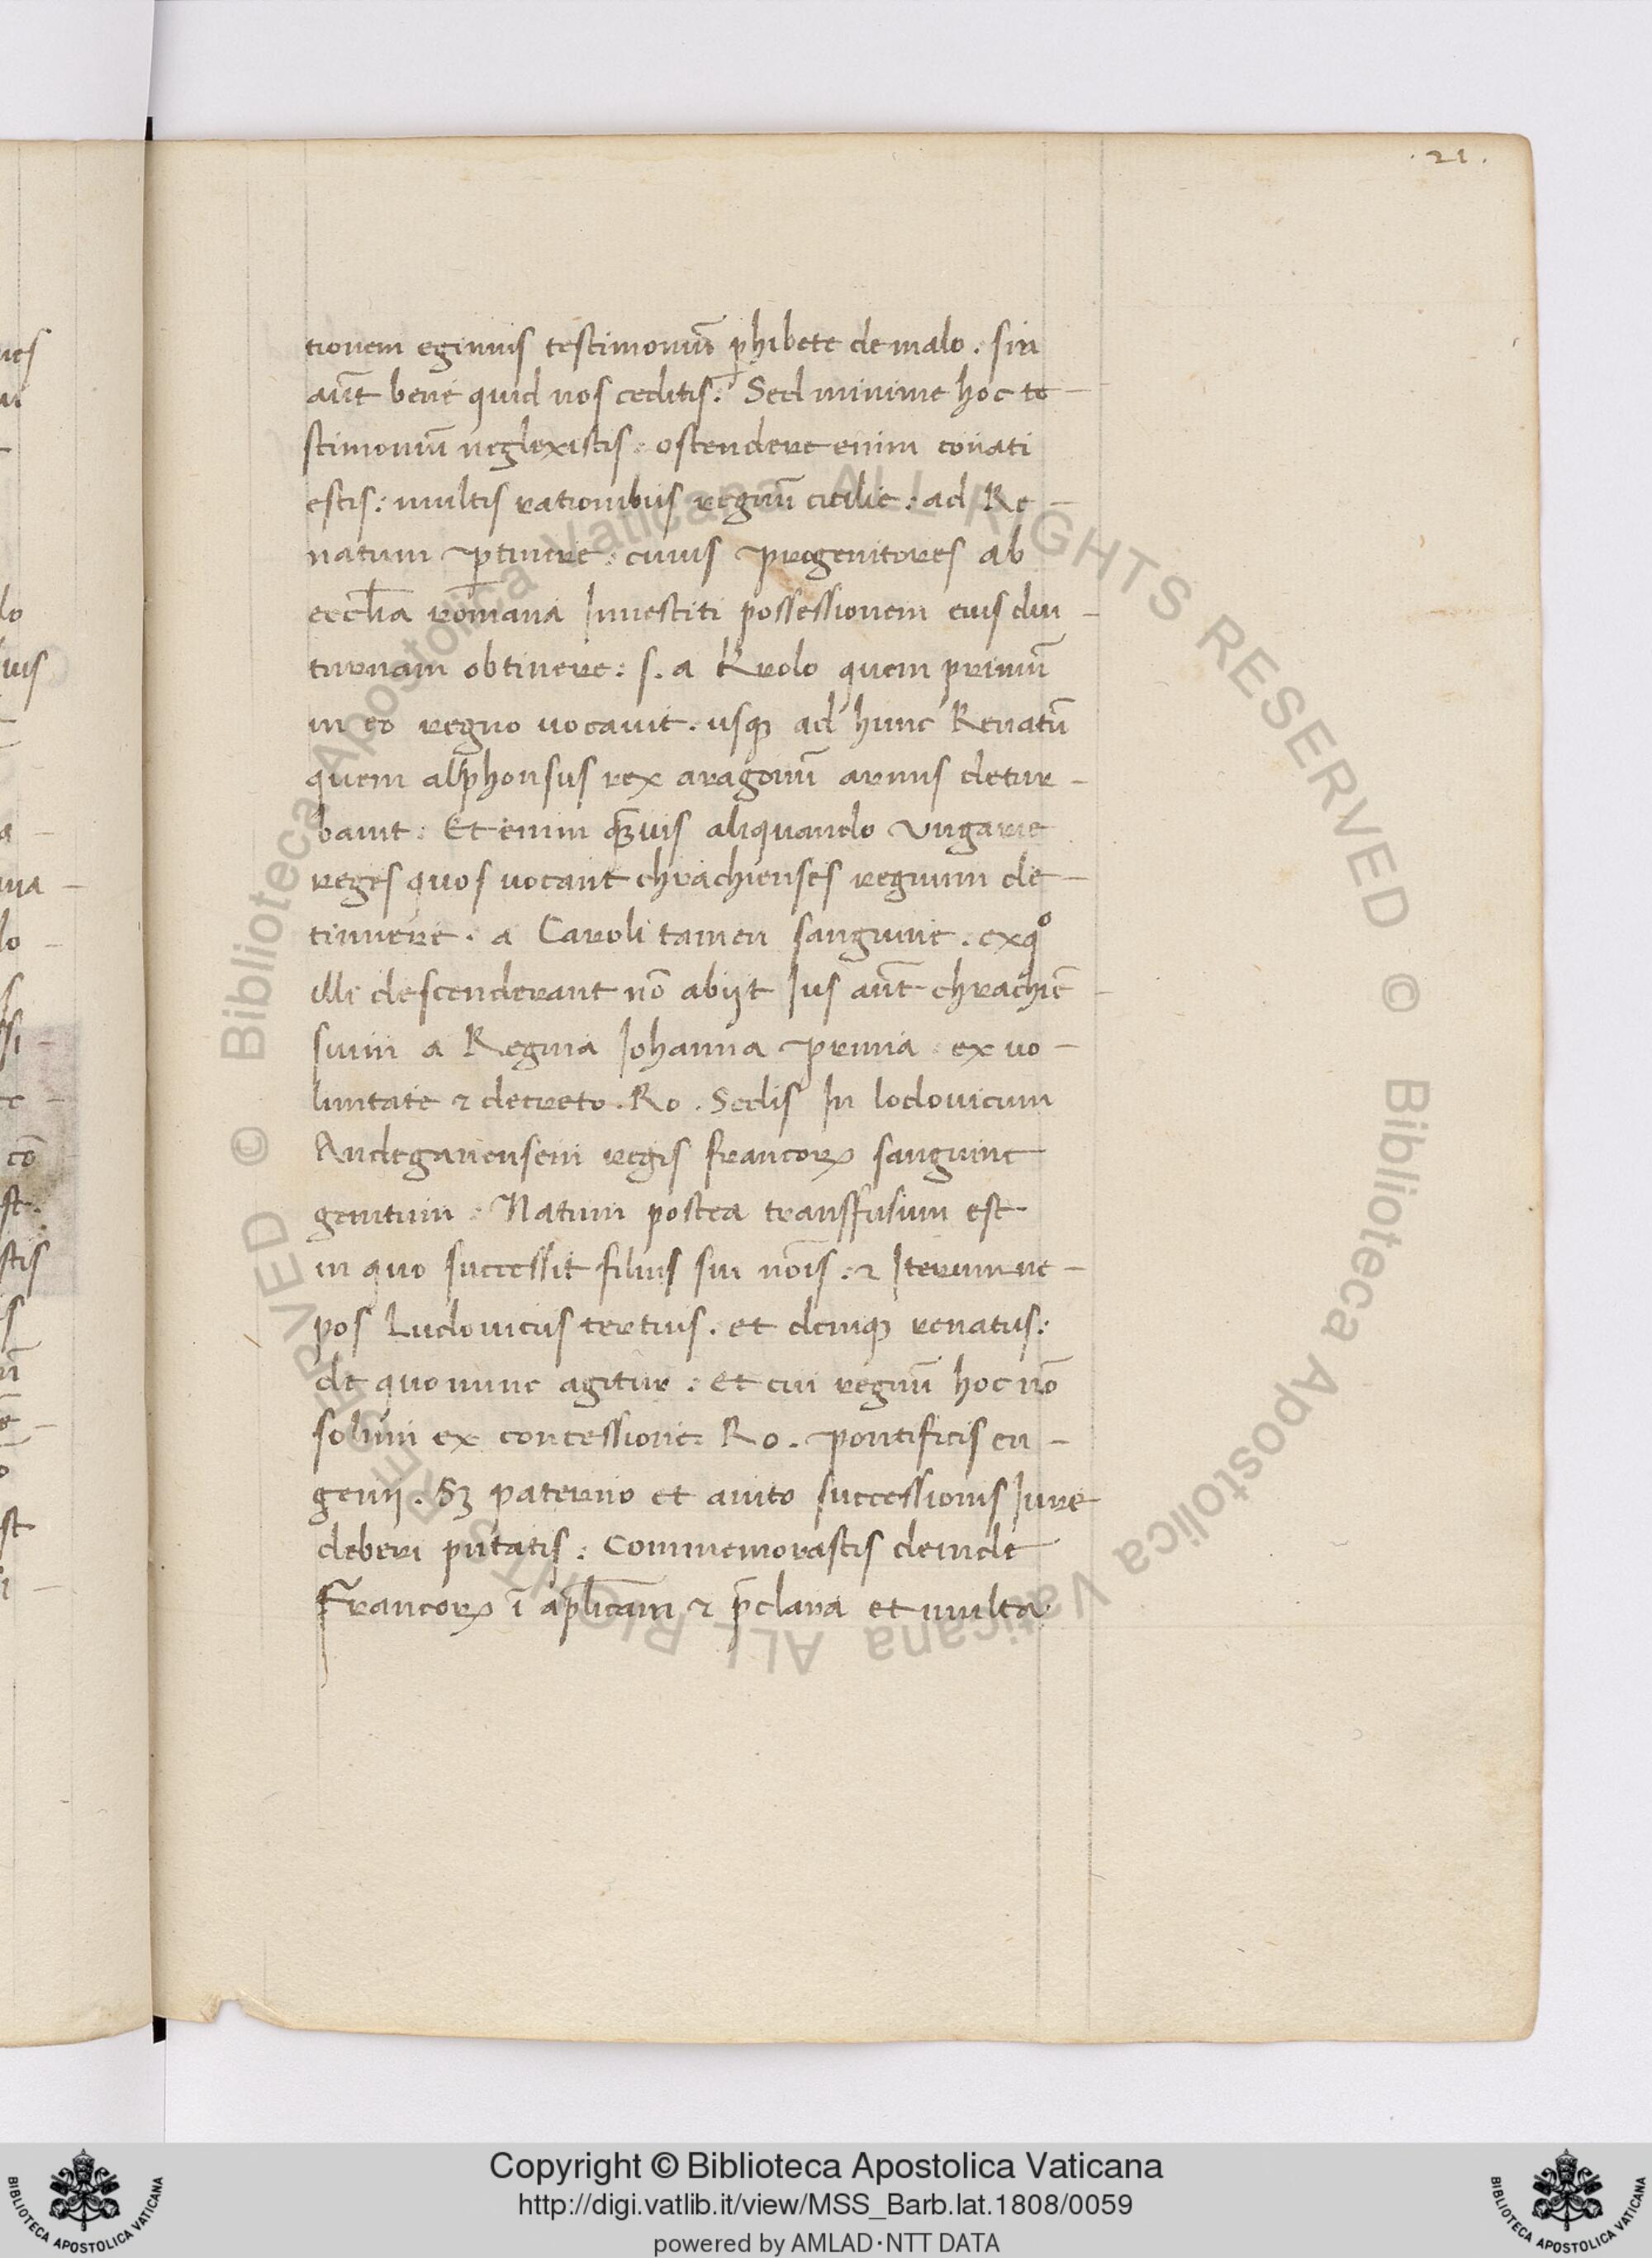 .21.
tionem egimus testimoniū ꝑhibete de malo. sin
aūt bene quid nos ceditis: Sed minime hoc te-
stimoniū neglexistis: ostendere enim conati
estis: multis rationibus regnū cicilie: ad Re-
natum ꝑtinere: cuius progenitores ab
eccl̄ia romana Inuestiti possessionem eius diu-
turnam obtinere: s. a Krolo quem primū
in eo regno uocauit. usqꝫ ad hunc Renatū
quem alphonsus rex aragonū armis detur-
bauit: Et enim qꝫuis aliquando Vngarie
reges quos uocant chrachienses regnum de-
tinuere. a Caroli tamen sanguine. ex qͦ
illi descenderant nō abijt Ius aūt chrachiē-
sium a Regina Johanna prima ex uo-
luntate ⁊ decreto. Ro. Sedis In lodouicum
Andegauensem regis francoꝝ sanguine
genitum: Natum postea transffusum est
in quo successit filius sui nōis: ⁊ Iterum ne-
pos Ludouicus tertius. et deniqꝫ renatus:
de quo nunc agitur: et cui regnū hoc nō
solum ex concessione Ro. pontificis eu-
genij. Sꝫ paterno et auito successionis Iure
deberi putatis: Commemorastis deinde
Francoꝝ ī apl̄icam ⁊ p̄clara et multa
BIBLIOTECA APOSTOLICA VATICANA
Copyright © Biblioteca Apostolica Vaticana
http://digi.vatlib.it/view/MSS_Barb.lat.1808/0059
powered by AMLAD·NTT DATA
BIBLIOTECA APOSTOLICA VATICANA